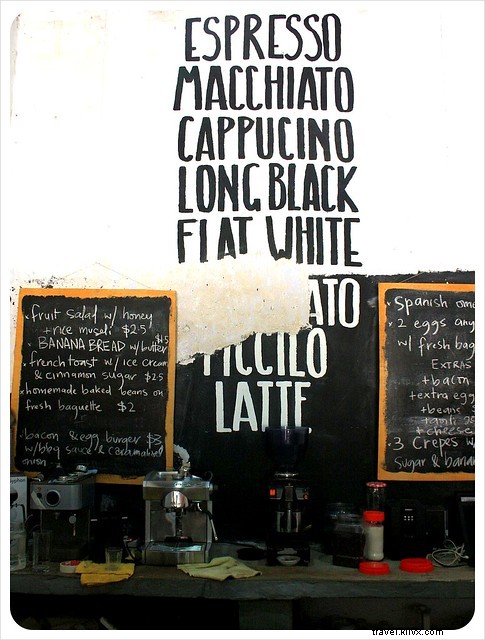 ESPRESSO
MACCHIATO
CAPPUCINO
LONG BLACK
FLAT WHITE
ATO
PICCILO
LATTE
fruit salad w/ honey
+ rice musli $2.5
BANANA BREAD w/ butter $1.5
french toast w/ ice cream
& cinnamon sugar $2.5
homemade baked beans on
fresh baguette $2
bacon & egg burger $3
w/ bbq sauce & caramalised
onion
Spanish ome
2 eggs any
w/ fresh bag
EXTRAS
+ bacon
+ extra egg
+ beans
+ cheese
3 Crepes w
Sugar & banan
travel.kiivx.com